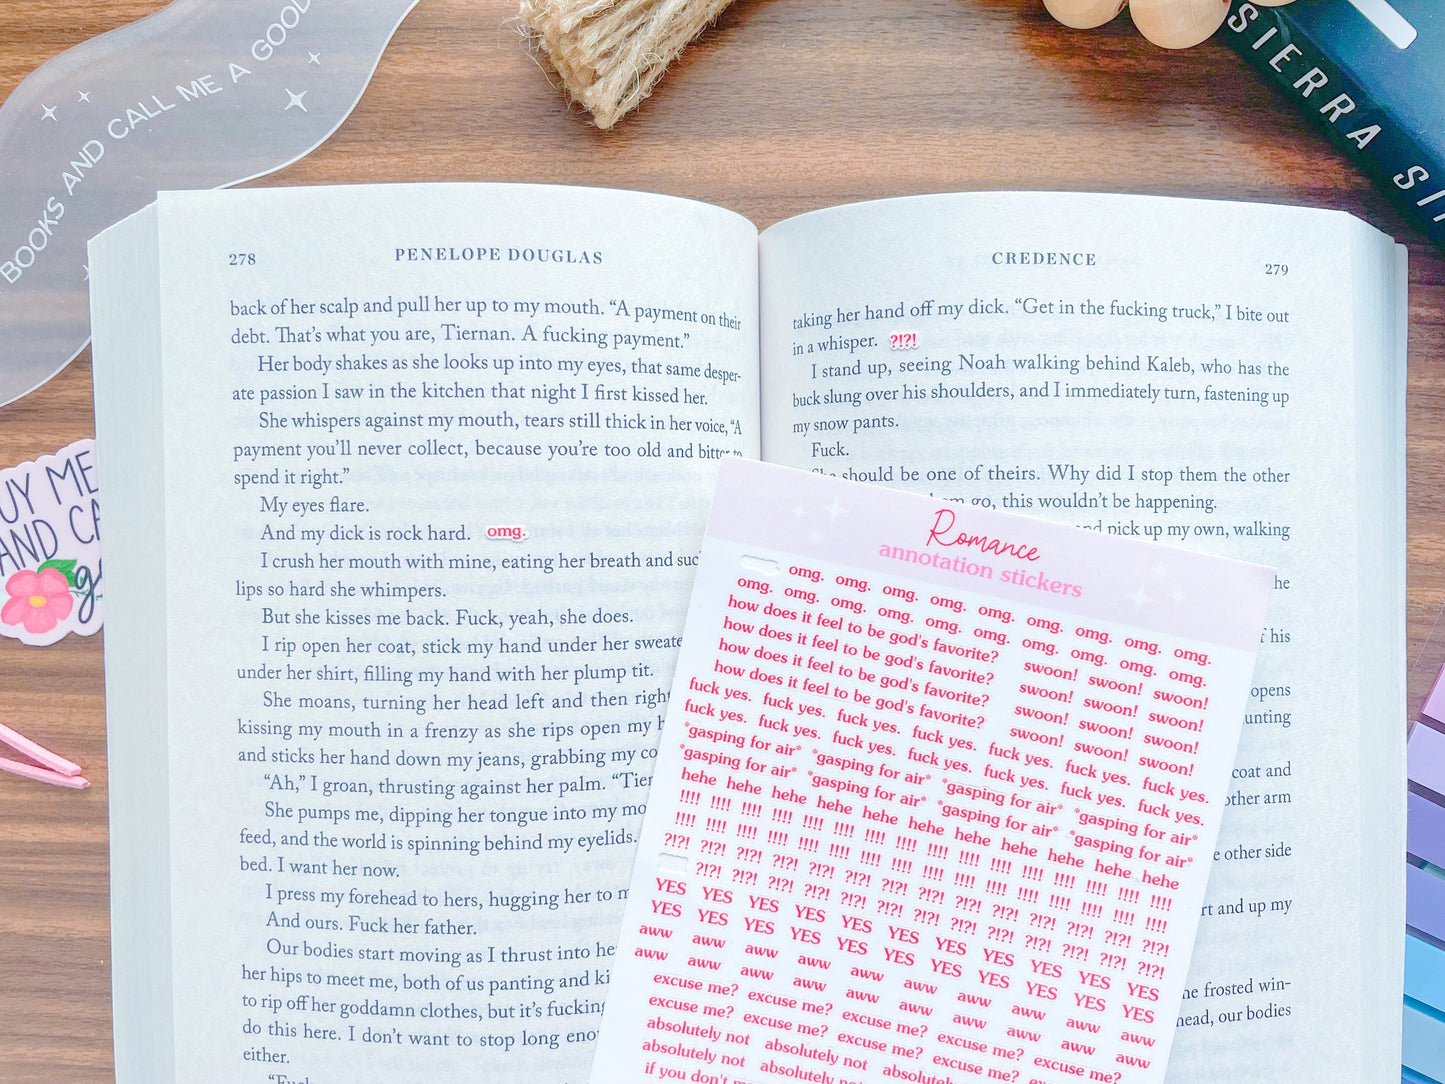 BOOKS AND CALL ME A GOOD
SIERRA
278
PENELOPE DOUGLAS
back of her scalp and pull her up to my mouth. “A payment on their
debt. That’s what you are, Tiernan. A fucking payment.”
Her body shakes as she looks up into my eyes, that same desper-
ate passion I saw in the kitchen that night I first kissed her.
She whispers against my mouth, tears still thick in her voice, “A
payment you’ll never collect, because you’re too old and bitter to
spend it right.”
My eyes flare.
And my dick is rock hard. omg.
I crush her mouth with mine, eating her breath and
lips so hard she whimpers.
But she kisses me back. Fuck, yeah, she does.
I rip open her coat, stick my hand under her
under her shirt, filling my hand with her plump tit.
She moans, turning her head left and then right
kissing my mouth in a frenzy as she rips open my
and sticks her hand down my jeans, grabbing my
“Ah,” I groan, thrusting against her palm.
She pumps me, dipping her tongue into my
feed, and the world is spinning behind my eyelids.
bed. I want her now.
I press my forehead to hers, hugging her to
And ours. Fuck her father.
Our bodies start moving as I thrust into
her hips to meet me, both of us panting and
to rip off her goddamn clothes, but it’s fucking
do this here. I don’t want to stop long
either.
CREDENCE
279
taking her hand off my dick. “Get in the fucking truck,” I bite out
in a whisper. ?!?!
I stand up, seeing Noah walking behind Kaleb, who has the
buck slung over his shoulders, and I immediately turn, fastening up
my snow pants.
Fuck.
She should be one of theirs. Why did I stop them the other
go, this wouldn’t be happening.
and pick up my own, walking
he
of his
opens
coat and
other arm
other side
and up my
frosted win-
our bodies
UY ME
AND
Romance
annotation stickers
omg. omg. omg. omg. omg. omg. omg. omg. omg.
omg. omg. omg. omg. omg. omg. omg. omg. omg. omg.
how does it feel to be god's favorite? swoon! swoon! swoon!
how does it feel to be god's favorite? swoon! swoon! swoon!
how does it feel to be god's favorite? swoon! swoon! swoon!
how does it feel to be god's favorite? swoon! swoon! swoon!
fuck yes. fuck yes. fuck yes. fuck yes. fuck yes. fuck yes. fuck yes.
fuck yes. fuck yes. fuck yes. fuck yes. fuck yes. fuck yes. fuck yes.
*gasping for air* *gasping for air* *gasping for air* *gasping for air*
*gasping for air* *gasping for air* *gasping for air* *gasping for air*
hehe hehe hehe hehe hehe hehe hehe hehe hehe hehe hehe
!!!! !!!! !!!! !!!! !!!! !!!! !!!! !!!! !!!! !!!! !!!! !!!! !!!! !!!! !!!! !!!!
!!!! !!!! !!!! !!!! !!!! !!!! !!!! !!!! !!!! !!!! !!!! !!!! !!!! !!!! !!!! !!!!
?!?! ?!?! ?!?! ?!?! ?!?! ?!?! ?!?! ?!?! ?!?! ?!?! ?!?! ?!?! ?!?! ?!?!
?!?! ?!?! ?!?! ?!?! ?!?! ?!?! ?!?! ?!?! ?!?! ?!?! ?!?! ?!?! ?!?!
YES YES YES YES YES YES YES YES YES YES YES
YES YES YES YES YES YES YES YES YES YES YES
aww aww aww aww aww aww aww aww aww aww
aww aww aww aww aww aww aww aww aww aww
excuse me? excuse me? excuse me? excuse me? excuse me?
excuse me? excuse me? excuse me? excuse me? excuse me?
absolutely not absolutely not
absolutely not absolutely not
if you don't